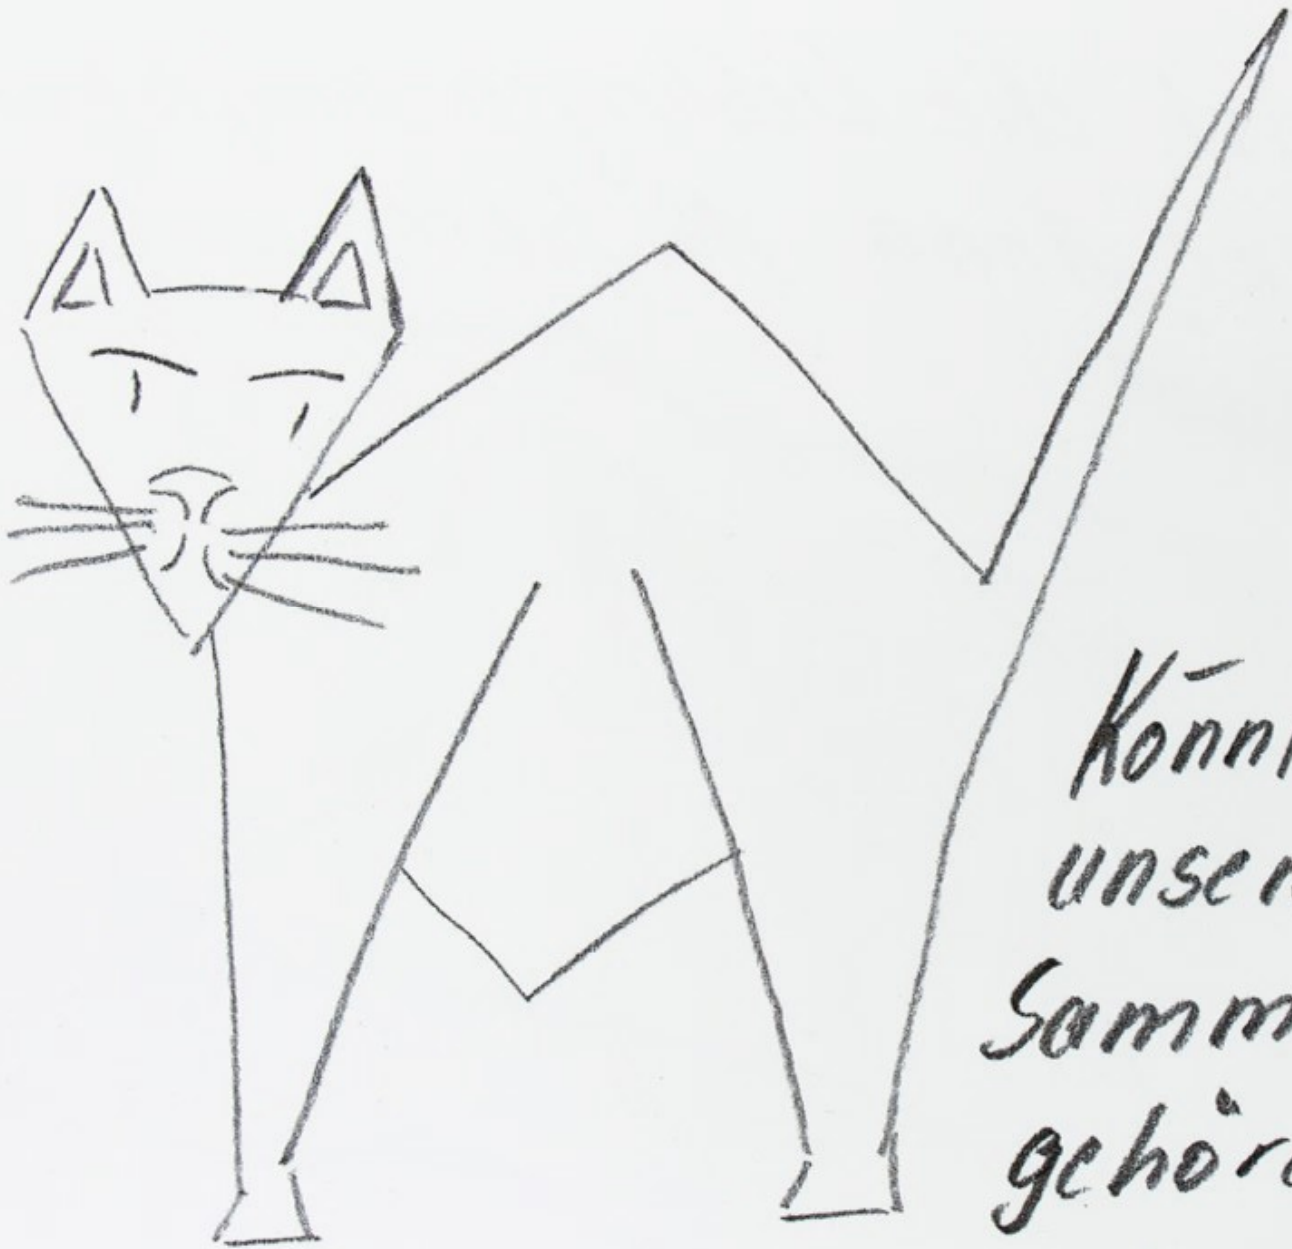 Könn
unser
Samm
gehör